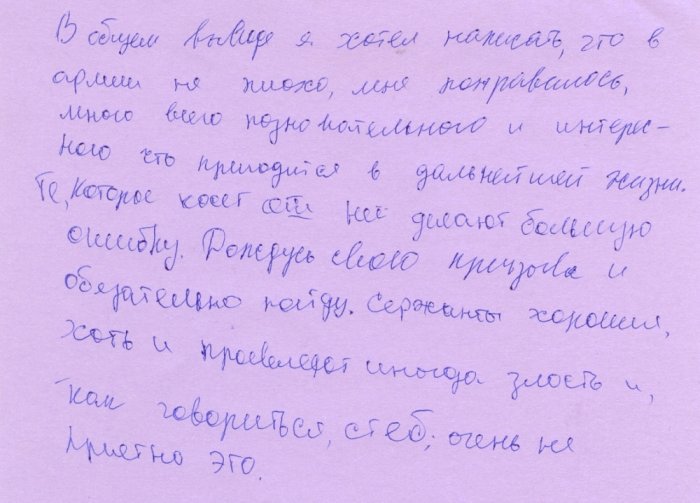 В общем выводе я хотел написать, что в
армии не плохо, мне понравилось,
много всего познавательного и интерес-
ного что пригодится в дальнейшей жизни.
Те, которое косет от неё делают большую
ошибку. Дождусь своего призыва и
обязательно пойду. Сержанты хорошие,
хоть и проевляют иногда злость и,
как говориться, стёб; очень не
приетно это.